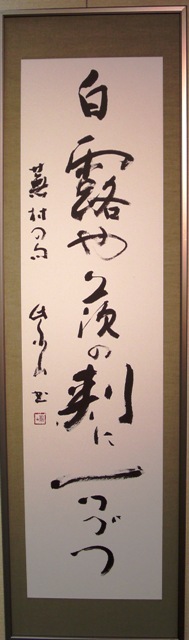 白露や茨の刺に一つづつ
蕪村の句
書